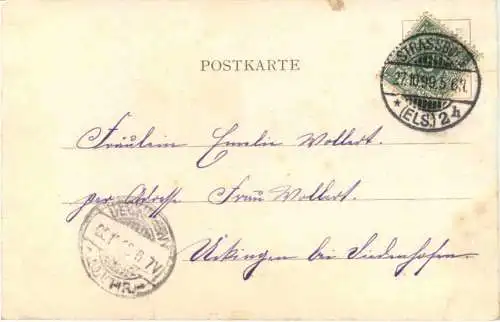 POSTKARTE
STRASSBURG
27.10.99.5-6N.
* (ELS.) 24
Fräulein Emelie Wollert.
per Adresse Frau Wollert.
Uckingen bei Diedenhofen.
7V
(LOTHR.)